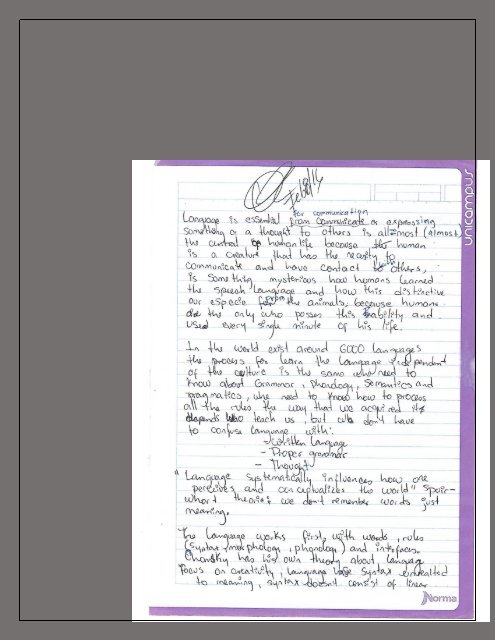 unicampus
Feb 8/16
for communication
Language is essential from communicate or expressing
something or a thought to others is allmost (almost)
the central of human life because the human
is a creature that has the necesity to
communicate and have contact to others,
is something mysterious how humans learned
the speech language and how this distinctive
our especie from the animals, because humans
are the only who posses this hability and
used every single minute of his life.
In the world exist around 6000 languages
the process for learn the language independent
of the culture is the same whe need to
know about Grammar, phonology, Semantics and
pragmatics, whe need to know how to process
all the rules the way that we acquired its
depends who teach us, but we don't have
to confuse language with:
- Written language
- Proper grammar
- Thought
"Language systematically influences how one
perceives and conceptualizes the world" Sapir-
Whorf theorist we don't remember words just
meaning.
The language works first, with words, rules
(syntax, morphology, phonology) and interfaces.
Chomsky has his own theory about language
focus on creativity, language Syntax
to meaning, syntax doesn't consist of linear
Norma